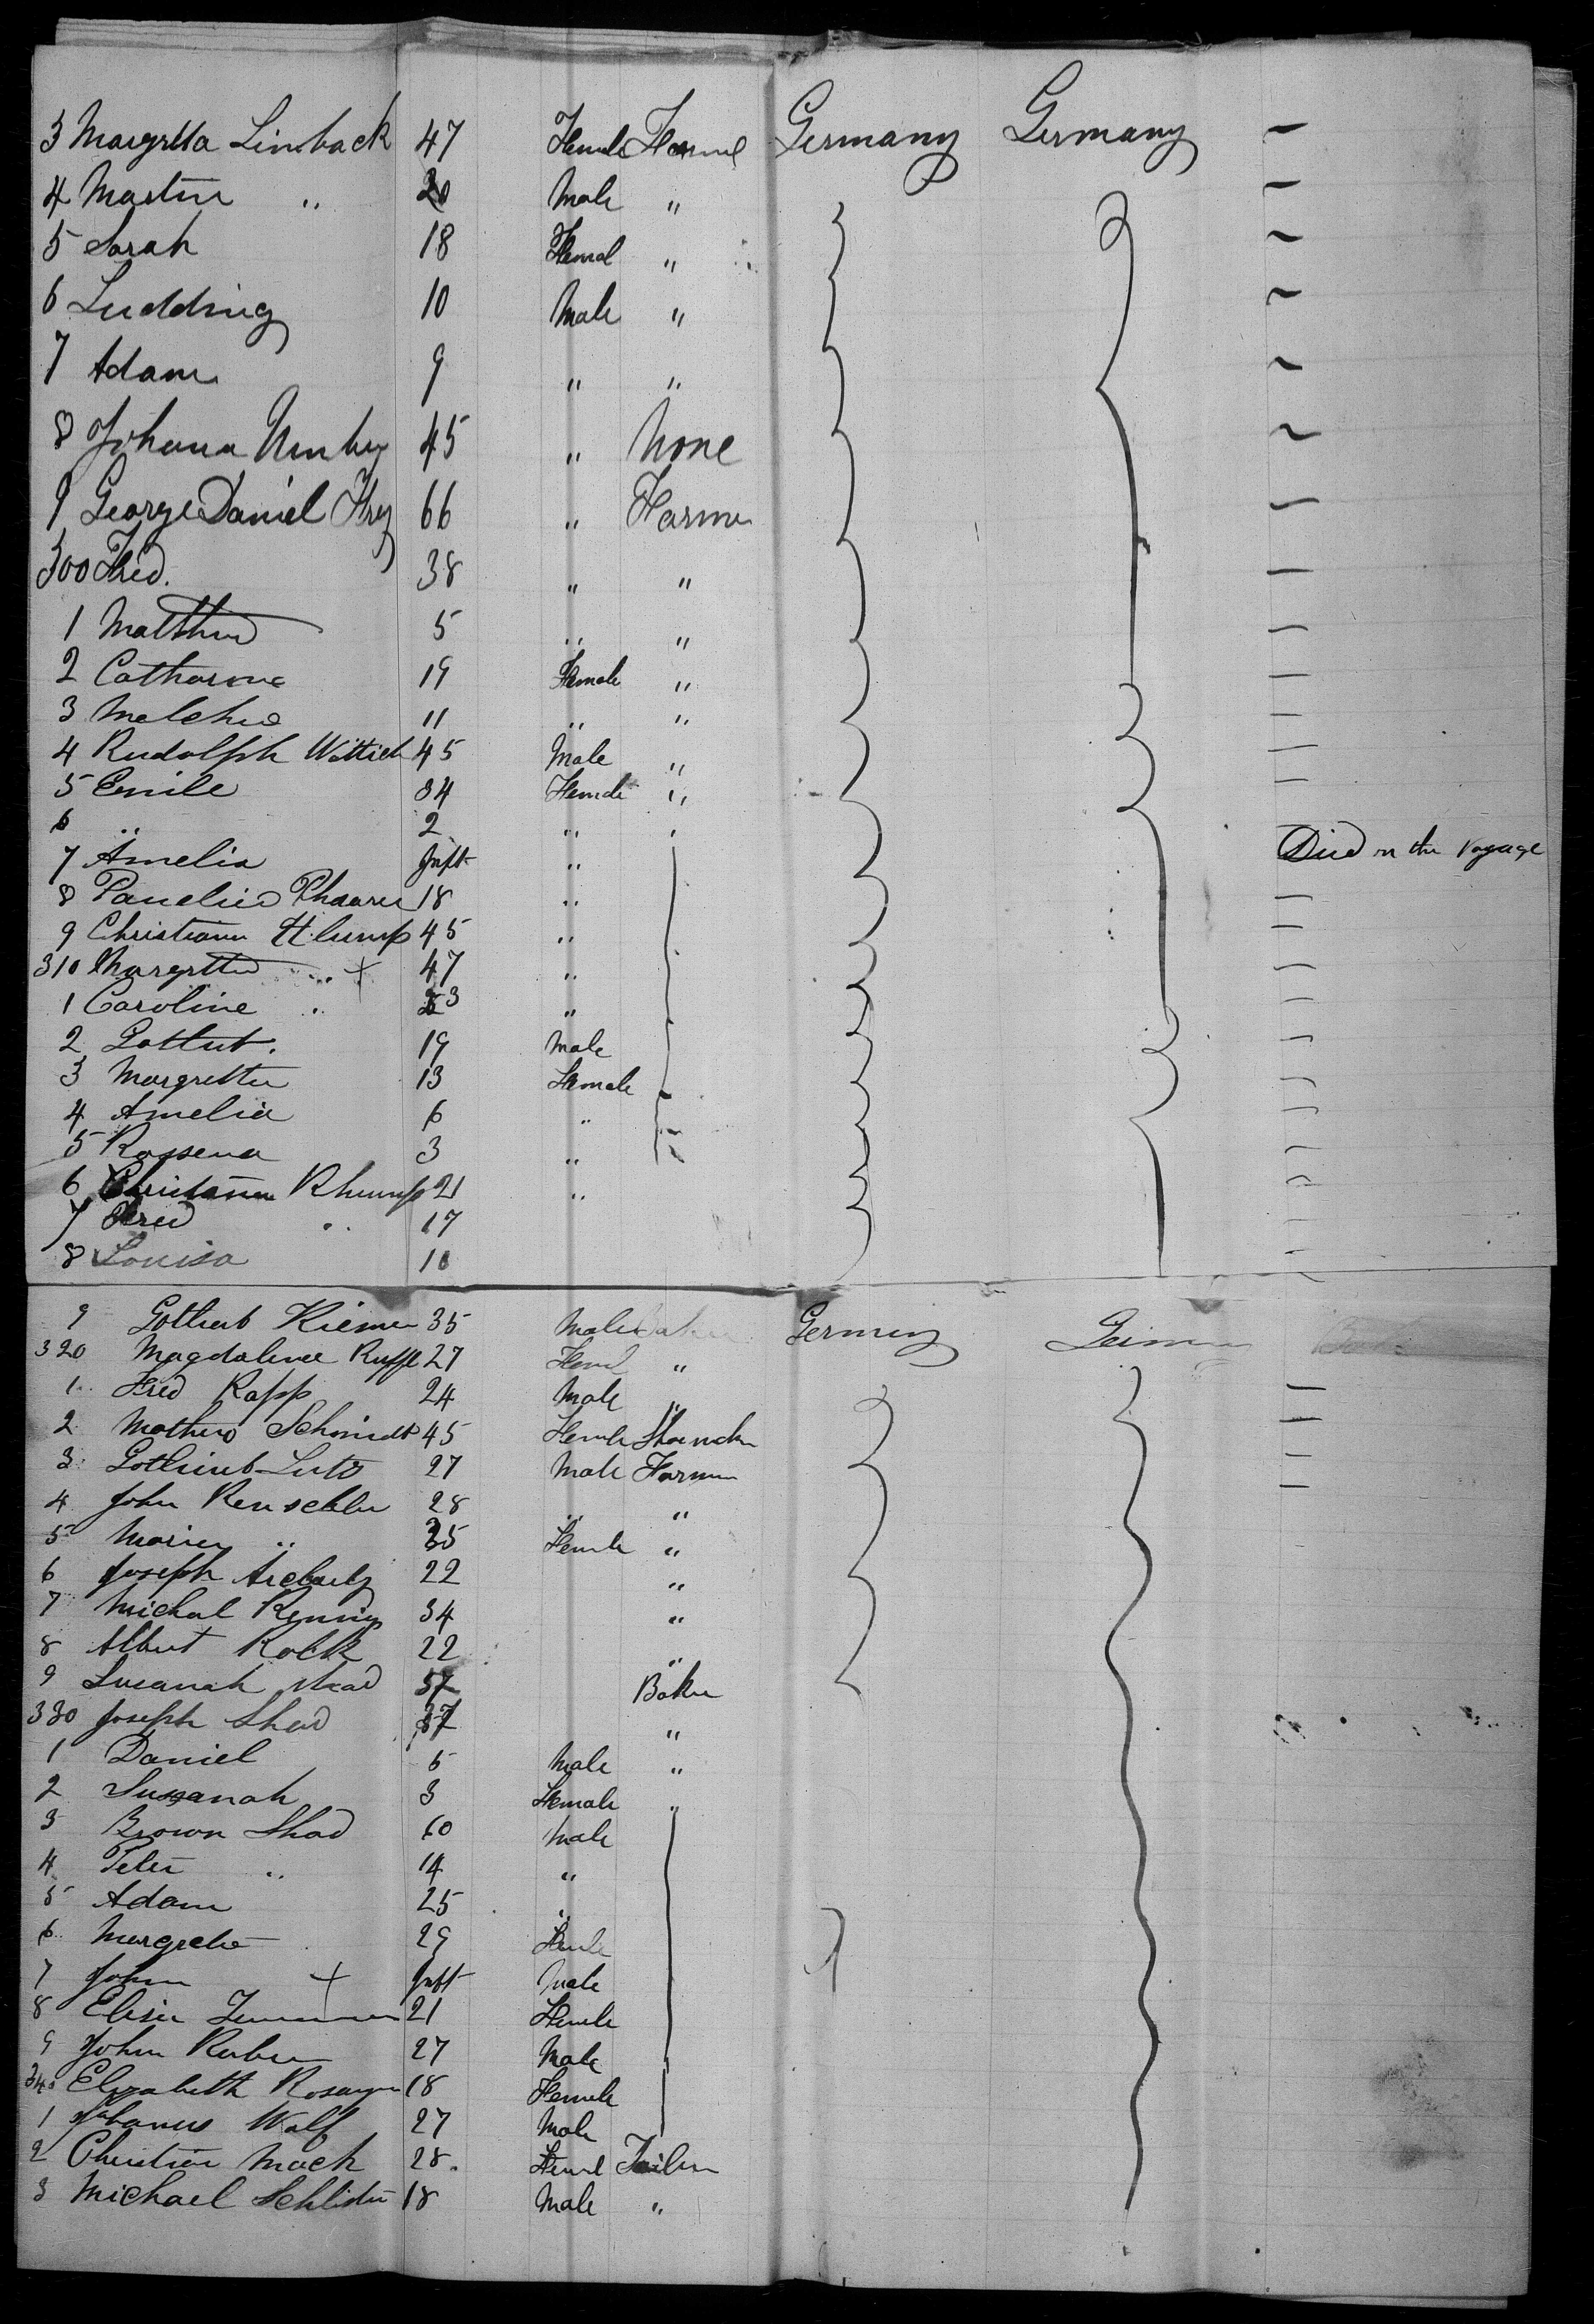 3 Margretta Limback 47 Female Farmer Germany Germany —
4 Martin " 20 Male " —
5 Sarah 18 Femal " —
6 Ludding 10 Male " —
7 Adam 9 " " —
8 Johana 45 " None —
9 George Daniel Frey 66 " Farmer —
300 Fred. 38 " " —
1 Matthew 5 " " —
2 Catharine 19 Female " —
3 Melchio 11 " " —
4 Rudolph Wittich 45 Male " —
5 Emile 34 Female " —
6 " 2 "
7 Amelia Inft " Died on the Voyage
8 18 " —
9 Christiann 45 " —
310 Margretta " + 47 " —
1 Caroline " 23 " —
2 Gottlieb. 19 Male —
3 Margretta 13 Female —
4 Amelia 6 " —
5 Rossena 3 " —
6 Christiann Rhumpp 21 " —
7 Fred " 17 —
8 Louisa 10 —
9 Gottlieb Kiemer 35 Male Baker Germany
320 Magdalena 27 Feml "
1 Fred Rapp 24 Male " —
2 Mathew Schmidt 45 Female Shoemaker —
3 Gottlieb Lutz 27 Male Farmer —
4 John Renschler 28 " " —
5 Maria " 35 Female "
6 Joseph 22 "
7 Michal 34 "
8 Albert Kolk 22 "
9 Susanah Shad 37 Baker
330 Joseph Shad 37 "
1 Daniel 5 Male "
2 Sussanah 3 Female "
3 Brown Shad 60 Male
4 Peter " 14 "
5 Adam 25 "
6 Margreta 29 Female
7 John + Inft Male
8 Elisa 21 Female
9 John 27 Male
340 Elizabeth 18 Female
1 Johanes Wolf 27 Male
2 Christian Mack 28. Femal Tailor
3 Michael 18 Male "